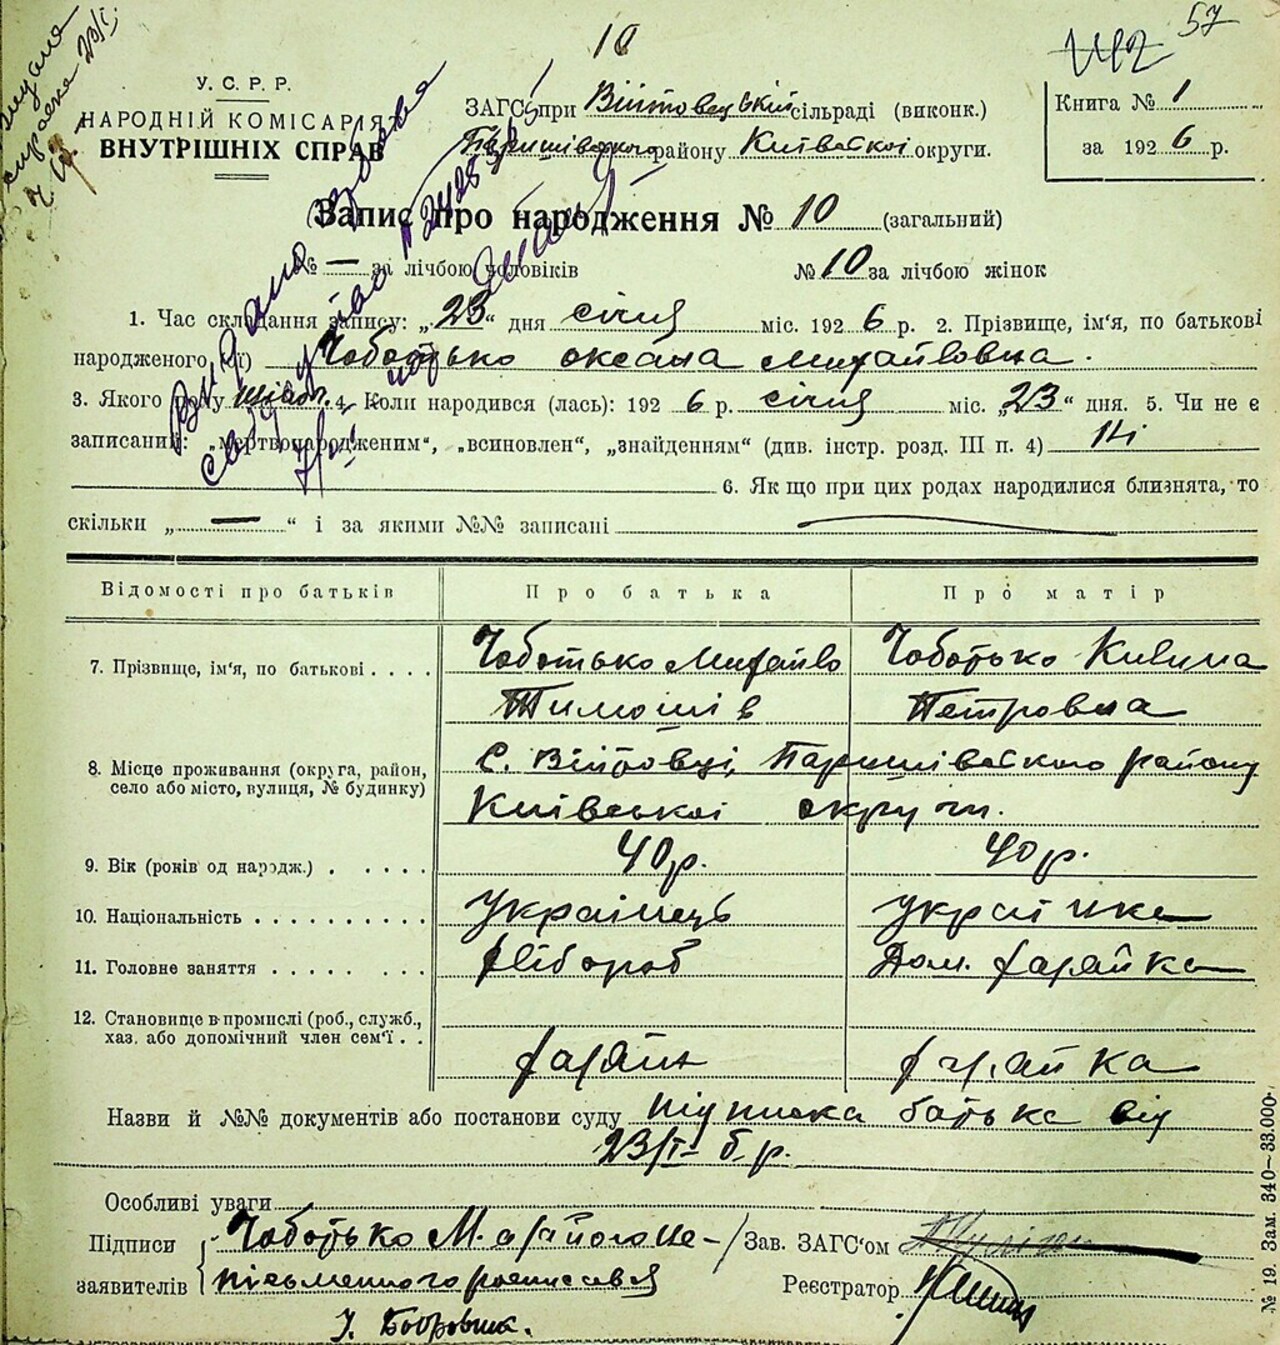 10
57
У. С. Р. Р.
НАРОДНІЙ КОМІСАРІЯТ
ВНУТРІШНІХ СПРАВ
ЗАГС при Війтовецькій сільраді (виконк.)
району Київської округи.
Книга № 1
за 1926 р.
Запис про народження № 10 (загальний)
№ — за лічбою чоловіків № 10 за лічбою жінок
1. Час складання запису: „23“ дня січня міс. 1926 р. 2. Прізвище, ім'я, по батькові
народженого, (ої) Чоботько Оксана Михайловна.
3. Якого полу жіноч. 4. Коли народився (лась): 1926 р. січня міс. „23“ дня. 5. Чи не є
записаний: „мертвонародженим“, „всиновлен“, „знайденням“ (див. інстр. розд. III п. 4) Ні
6. Як що при цих родах народилися близнята, то
скільки „—“ і за якими №№ записані
Відомості про батьків Про батька Про матір
7. Прізвище, ім'я, по батькові . . . . Чоботько Михайло Чоботько Килина
Тимошів Петровна
8. Місце проживання (округа, район, с. Війтовці, Баришівського району
село або місто, вулиця, № будинку) Київської округи.
9. Вік (років од народж.) . . . . . 40 р. 40 р.
10. Національність . . . . . . . . . . Українець українка
11. Головне заняття . . . . . . . . хлібороб Дом. хазяйка
12. Становище в промислі (роб., служб.,
хаз. або допомічний член сем'ї . . хазяїн хазяйка
Назви й №№ документів або постанови суду підписка батька від
23/I б. р.
Особливі уваги
Підписи Чоботько М. а за його не- Зав. ЗАГС'ом
заявителів письменного росписався Реєстратор
І. Бобровник.
№ 19. Зам. 340—33.000.